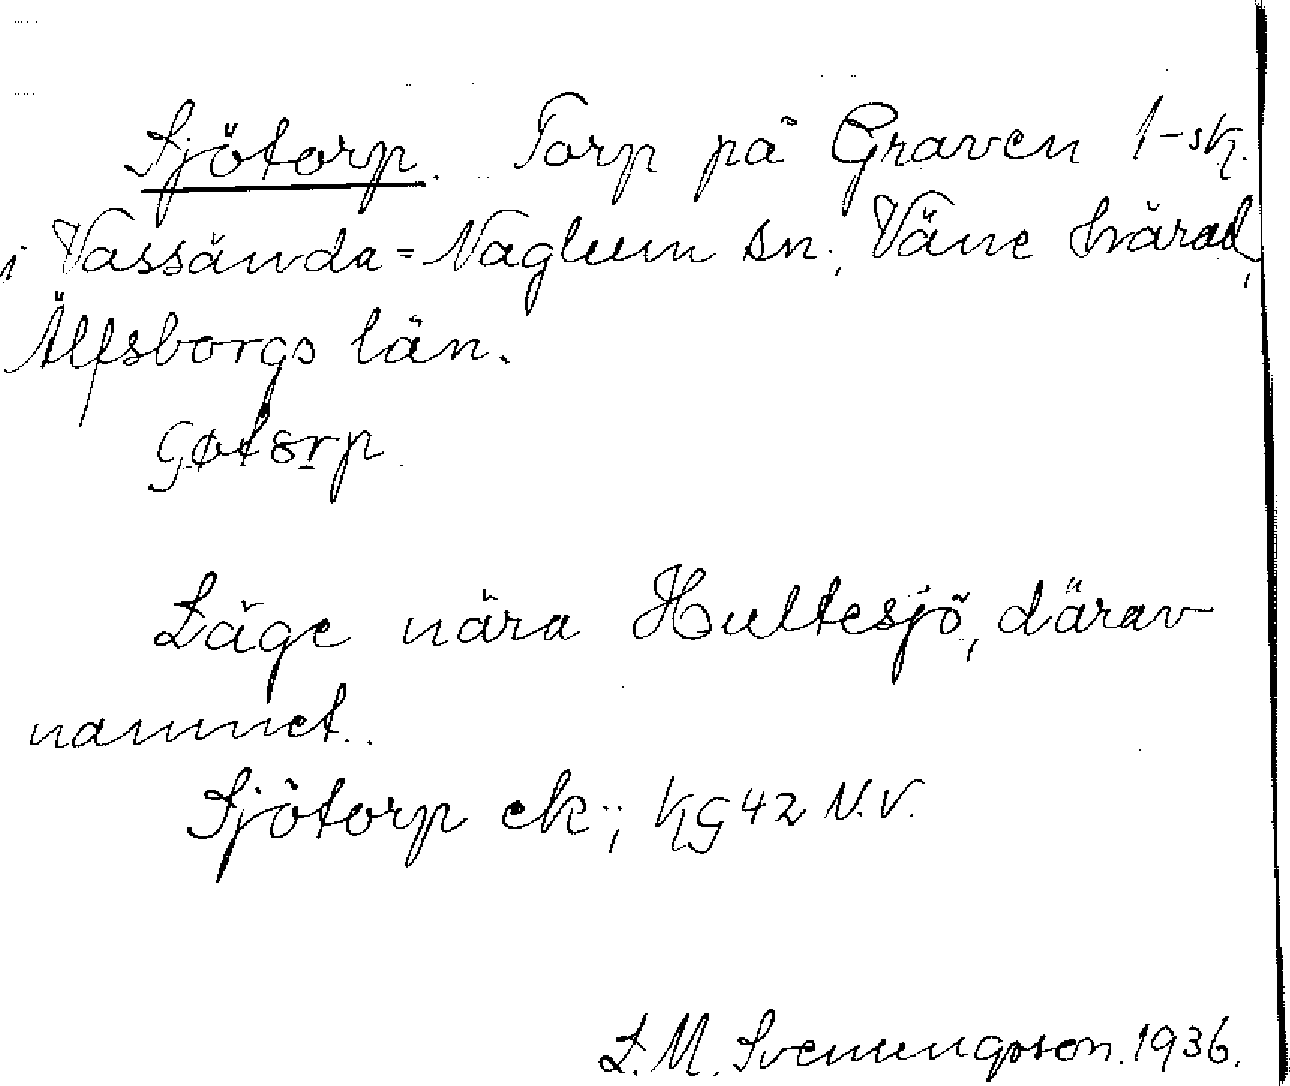 Sjötorp. Torp på Graven 1-sk.
i Vassända-Naglum sn., Väne härad,
Älfsborgs län.
Läge nära Hultesjö, därav
namnet.
Sjötorp ek.; KG 42 N.V.
L. M. Svenungsson. 1936.